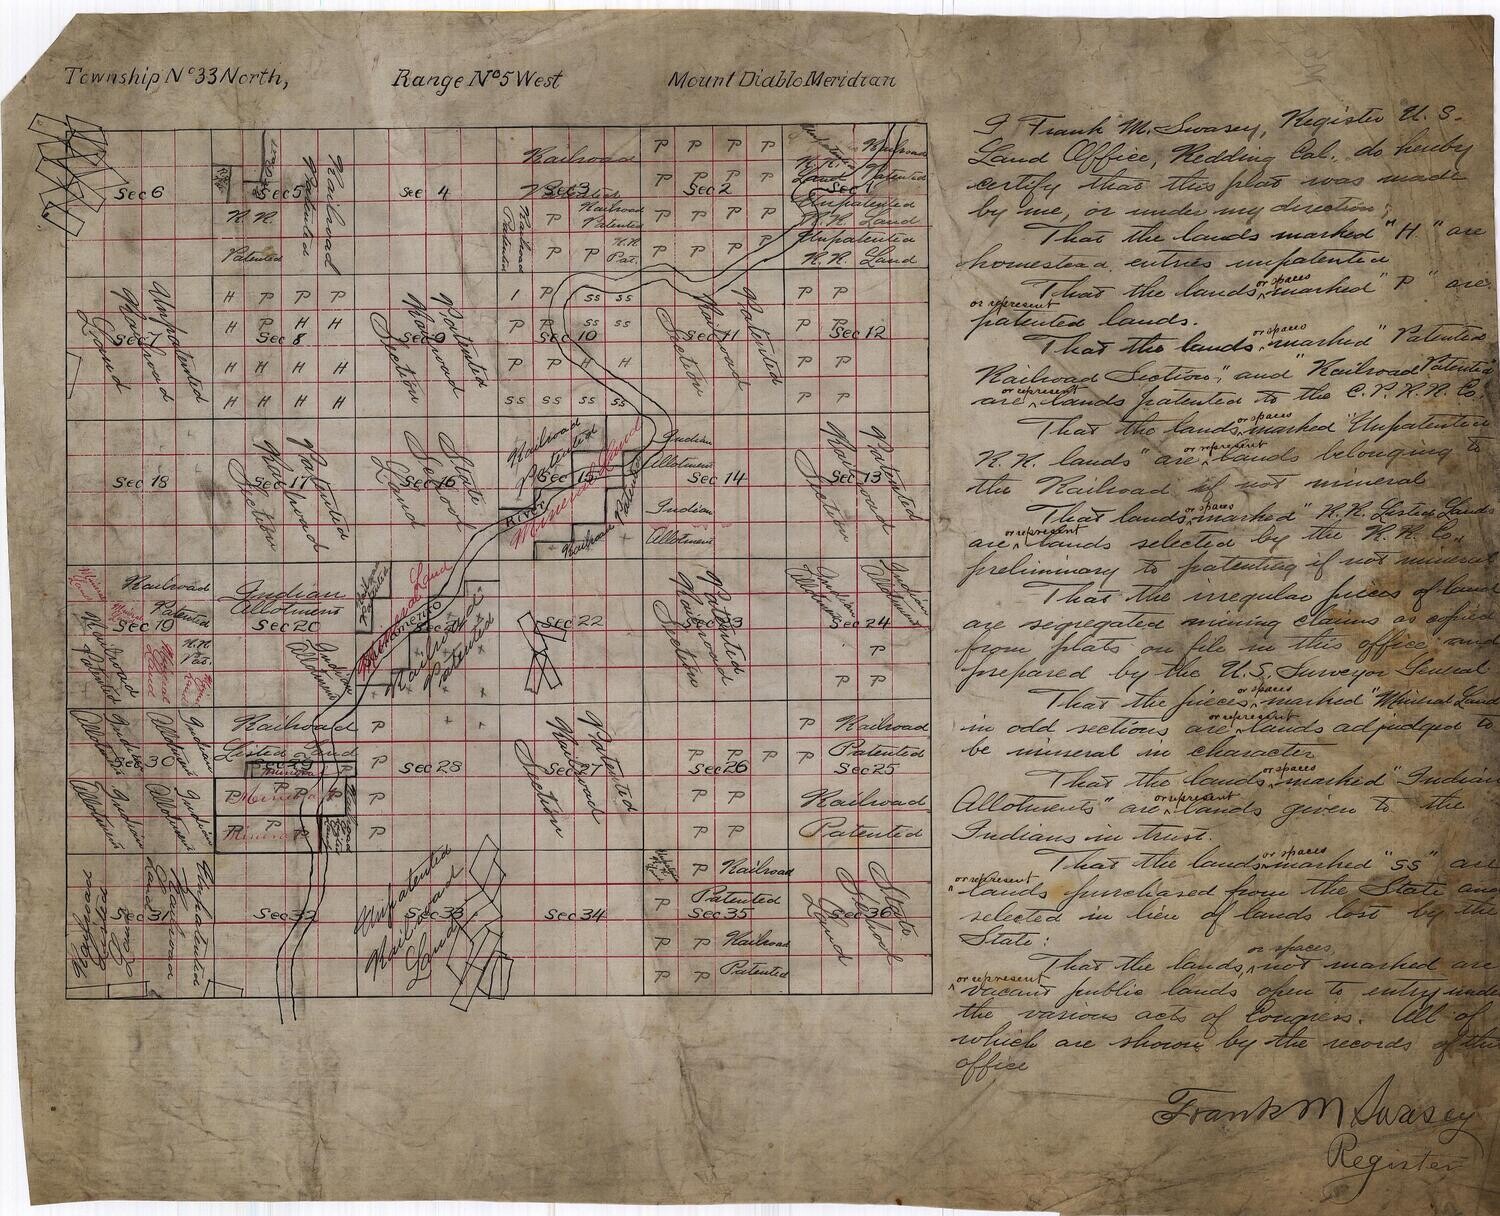 Township Nº 33 North,
Range Nº 5 West
Mount Diablo Meridian
Sec 6
Sec 5
R. R.
Patented
Railroad
Patented
Sec 4
Railroad
Patented
Sec 3
P P Railroad
Patented
P P R.R.
Pat.
Railroad
Patented
P P P P
P P P P
Sec 2
P P P P
P P P P
Railroad
Patented
Sec 1
Unpatented
R. R. Land
Unpatented
R. R. Land
Unpatented
Railroad
Land
Sec 7
H P P P
H P H H
Sec 8
H H H H
H H H H
Patented
Railroad
Section
Sec 9
I P SS SS
P P SS SS
Sec 10
P P H H
SS SS SS SS
Patented
Railroad
Section
Sec 11
P P
P P
Sec 12
P P
P P
Sec 18
Patented
Railroad
Section
Sec 17
State
School
Land
Sec 16
Railroad
Patented
Sec 15
Mineral Land
River
Railroad
Patented
Indian
Allotment
Sec 14
Indian
Allotment
Patented
Railroad
Section
Sec 13
Railroad
Patented
Sec 19
R.R.
Pat.
Mineral
Land
Railroad
Patented
Indian
Allotment
Sec 20
Indian
Allotment
Railroad
Patented
Mineral Land
Sacramento
Sec 21
Railroad
Patented
Sec 22
Patented
Railroad
Section
Sec 23
Indian
Allotment
Indian
Allotment
Sec 24
P
P P
Indian
Allotment
Indian
Allotment
Sec 30
Indian
Allotment
Indian
Allotment
Railroad
Listed Land
Sec 29
Mineral
P P P P
Mineral
P P P
P
Sec 28
P
P
Patented
Railroad
Section
Sec 27
P P P P
Sec 26
P P
P P
P Railroad
Patented
Sec 25
Railroad
Patented
Unpatented
Railroad
Land
Sec 31
Sec 32
Unpatented
Railroad
Land
Sec 33
Sec 34
P Railroad
P Patented
Sec 35
P P Railroad
P P Patented
State
School
Land
Sec 36
I Frank M. Swasey, Register U. S.
Land Office, Redding Cal. do hereby
certify that this plat was made
by me, or under my direction;
That the lands marked "H." are
homestead entries unpatented
or spaces
That the lands ^ marked "P" are
or represent
patented lands.
or spaces
That the lands ^ marked "Patented
Railroad Section", and "Railroad Patented"
or represent
are ^ lands patented to the C.P.R.R. Co.
or spaces
That the lands ^ marked "Unpatented
or represent
R.R. lands" are ^ lands belonging to
the Railroad if not mineral
or spaces
That lands ^ marked "R.R. Listed Lands
or represent
are ^ lands selected by the R.R. Co.,
preliminary to patenting if not mineral
That the irregular pieces of land
are segregated mining claims as copied
from plats on file in this office and
prepared by the U.S. Surveyor General
or spaces
That the pieces ^ marked "Mineral Land
or represent
in odd sections are ^ lands adjudged to
be mineral in character
or spaces
That the lands ^ marked "Indian
or represent
Allotments" are ^ lands given to the
Indians in trust.
or spaces
That the lands ^ marked "SS" are
or represent
^ lands purchased from the State and
selected in lieu of lands lost by the
State:
or spaces
That the lands ^ not marked are
or represent
^ vacant public lands open to entry under
the various acts of Congress. All of
which are shown by the records of this
office
Frank M Swasey
Register